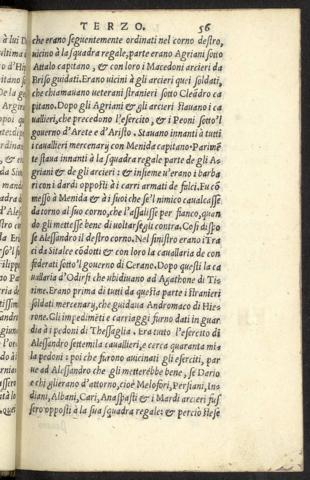 TERZO. 56
che erano seguentemente ordinati nel corno destro,
uicino à la squadra regale, parte erano Agriani sotto
Attalo capitano, & con loro i Macedoni arcieri da
Briso guidati. Erano uicini à gli arcieri quei soldati,
che chiamauano ueterani stranieri sotto Cleãdro ca
pitano. Dopo gli Agriani & gli arcieri stauano i ca
uallieri, che precedono l'esercito, & i Peoni sotto'l
gouerno d'Arete & d'Aristo. Stauano innanti à tutti
i cauallieri mercenary con Menida capitano. Parimẽ
te staua innanti à la squadra regale parte de gli A=
griani & de gli arcieri: & insieme u'erano i barba
ri con i dardi opposti à i carri armati de falci. Fu cõ
messo à Menida & à i suoi che se'l nimico caualcasse
datorno al suo corno, che l'assalisse per fianco, quan
do gli mettesse bene di uoltarsegli contra. Cosi dispo
se Alessandro il destro corno. Nel sinistro erano i Tra
ci da Sitalce cõdotti & con loro la cauallaria de con
federati sotto'l gouerno di Cerano. Dopo questi la ca
uallaria d'Odrisi che ubidiuano ad Agathone di Tis
rime. Erano prima di tutti da questa parte i stranieri
soldati mercenary, che guidaua Andromaco di Hie=
rone. Gli impedimẽti e carriaggi furno dati in guar
dia à i pedoni di Thessaglia. Era tutto l'esercito di
Alessandro settemila cauallieri, e cerca quaranta mi
la pedoni: poi che furono auicinati gli eserciti, par
ue ad Alessandro che gli metterebbe bene, se Dario
e chi glierano d'attorno, cioè Melofori, Persiani, In
diani, Albani, Cari, Anaspasti & i Mardi arcieri fus
sero opposti à la sua squadra regale: & perciò stese